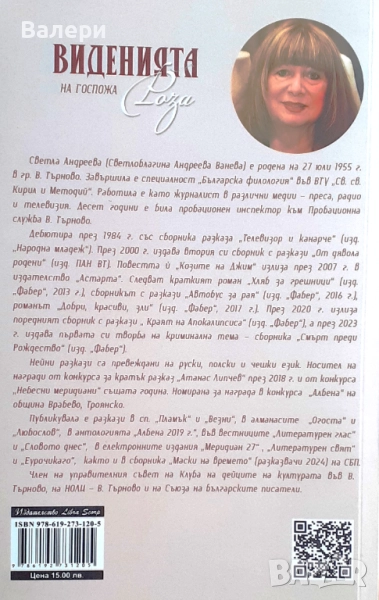 Валери
ВИДЕНИЯТА
НА ГОСПОЖА
Рози
Светла Андреева (Светлоблагина Андреева Ванева) е родена на 27 юли 1955 г.
в гр. В. Търново. Завършила е специалност „Българска филология" във ВТУ „Св. св.
Кирил и Методий". Работила е като журналист в различни медии – преса, радио
и телевизия. Десет години е била пробационен инспектор към Пробационна
служба В. Търново.
Дебютира през 1984 г. със сборника разкази „Телевизор и канарче" (изд.
„Народна младеж"). През 2000 г. издава втория си сборник с разкази „От дявола
родени" (изд. ПАН ВТ). Повестта ѝ „Козите на Джим" излиза през 2007 г. в
издателство „Астарта". Следват краткият роман „Хляб за грешници" (изд.
„Фабер", 2013 г.), сборникът с разкази „Автобус за рая" (изд. „Фабер", 2016 г.),
романът „Добри, красиви, зли" (изд. „Фабер", 2017 г.). През 2020 г. излиза
поредният сборник с разкази „Краят на Апокалипсиса" (изд. „Фабер"), а през 2023
г. издава първата си творба на криминална тема – сборника „Смърт преди
Рождество" (изд. „Фабер").
Нейни разкази са превеждани на руски, полски и чешки език. Носител на
награди от конкурса за кратък разказ "Атанас Липчев" през 2018 г. и от конкурса
„Небесни меридиани" същата година. Номирана за награда в конкурса „Албена" на
община Врабево, Троянско.
Публикувала е разкази в сп. „Пламък" и „Везни", в алманасите „Огоста" и
„Любослов", в антологията „Албена 2019 г.", във вестниците „Литературен глас"
и „Словото днес", в електронните издания „Меридиан 27", „Литературен свят"
и „Еврочикаго", както и в сборника „Маски на времето" (разказвачи 2024) на СБП.
Член на управителния съвет на Клуба на дейците на културата във В.
Търново, на НОЛИ – В. Търново и на Съюза на българските писатели.
Издателство Libra Scorp
ISBN 978-619-273-120-5
9 786192 731205
Цена 15.00 лв.
bazar.bg